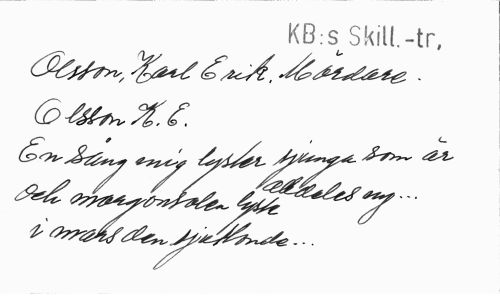 KB:s Skill.-tr.
Olsson, Karl Erik. Mördare.
Olsson K. E.
En sång mig lyster sjunga som är
alldeles ny...
och morgonsolen lyste
i mars den sjuttonde...